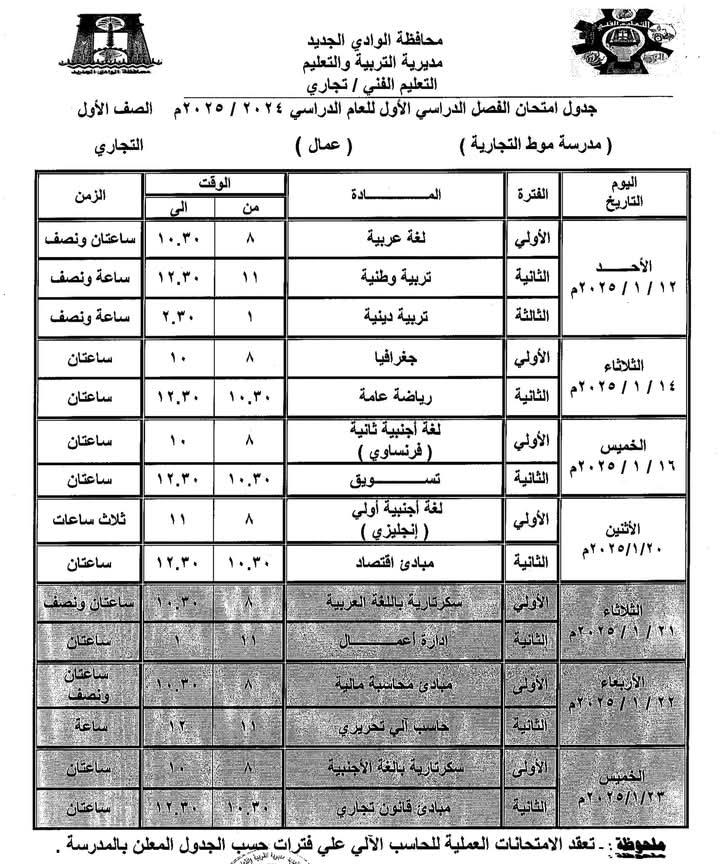 محافظة الوادي الجديد
محافظة الوادي الجديد
مديرية التربية والتعليم
التعليم الفني / تجاري
جدول امتحان الفصل الدراسي الأول للعام الدراسي ٢٠٢٤ / ٢٠٢٥م الصف الأول
( مدرسة موط التجارية ) ( عمال ) التجاري
اليوم التاريخ الفترة المــــــادة الوقت الزمن
من الى
الأحـــد ١٢ / ١ / ٢٠٢٥م الأولي لغة عربية ٨ ١٠.٣٠ ساعتان ونصف
الثانية تربية وطنية ١١ ١٢.٣٠ ساعة ونصف
الثالثة تربية دينية ١ ٢.٣٠ ساعة ونصف
الثلاثاء ١٤ / ١ / ٢٠٢٥م الأولي جغرافيا ٨ ١٠ ساعتان
الثانية رياضة عامة ١٠.٣٠ ١٢.٣٠ ساعتان
الخميس ١٦ / ١ / ٢٠٢٥م الأولي لغة أجنبية ثانية ( فرنساوي ) ٨ ١٠ ساعتان
الثانية تســـــويق ١٠.٣٠ ١٢.٣٠ ساعتان
الأثنين ٢٠/١/٢٠٢٥م الأولي لغة أجنبية أولي ( إنجليزي ) ٨ ١١ ثلاث ساعات
الثانية مبادئ اقتصاد ١٠.٣٠ ١٢.٣٠ ساعتان
الثلاثاء ٢١ / ١ / ٢٠٢٥م الأولي سكرتارية باللغة العربية ٨ ١٠.٣٠ ساعتان ونصف
الثانية إدارة أعمـــــــال ١١ ١ ساعتان
الأربعاء ٢٢ / ١ / ٢٠٢٥م الأولى مبادئ محاسبة مالية ٨ ١٠.٣٠ ساعتان ونصف
الثانية حاسب ألي تحريري ١١ ١٢ ساعة
الخميس ٢٣/١/٢٠٢٥م الأولى سكرتارية بالغة الأجنبية ٨ ١٠ ساعتان
الثانية مبادئ قانون تجاري ١٠.٣٠ ١٢.٣٠ ساعتان
ملحوظة : - تعقد الامتحانات العملية للحاسب الآلي علي فترات حسب الجدول المعلن بالمدرسة .